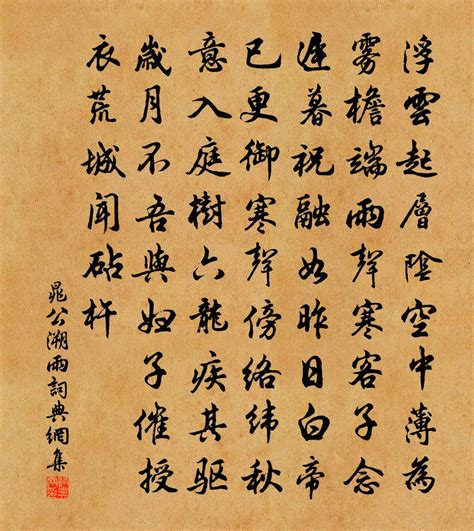 浮雲起層陰空中薄為
霧檐端雨聲寒客子念
遲暮祝融如昨日白帝
已更御寒聲傍絡緯秋
意入庭樹六龍疾其驅
歲月不吾與婦子催授
衣荒城聞砧杵
晁公溯雨詞典網集